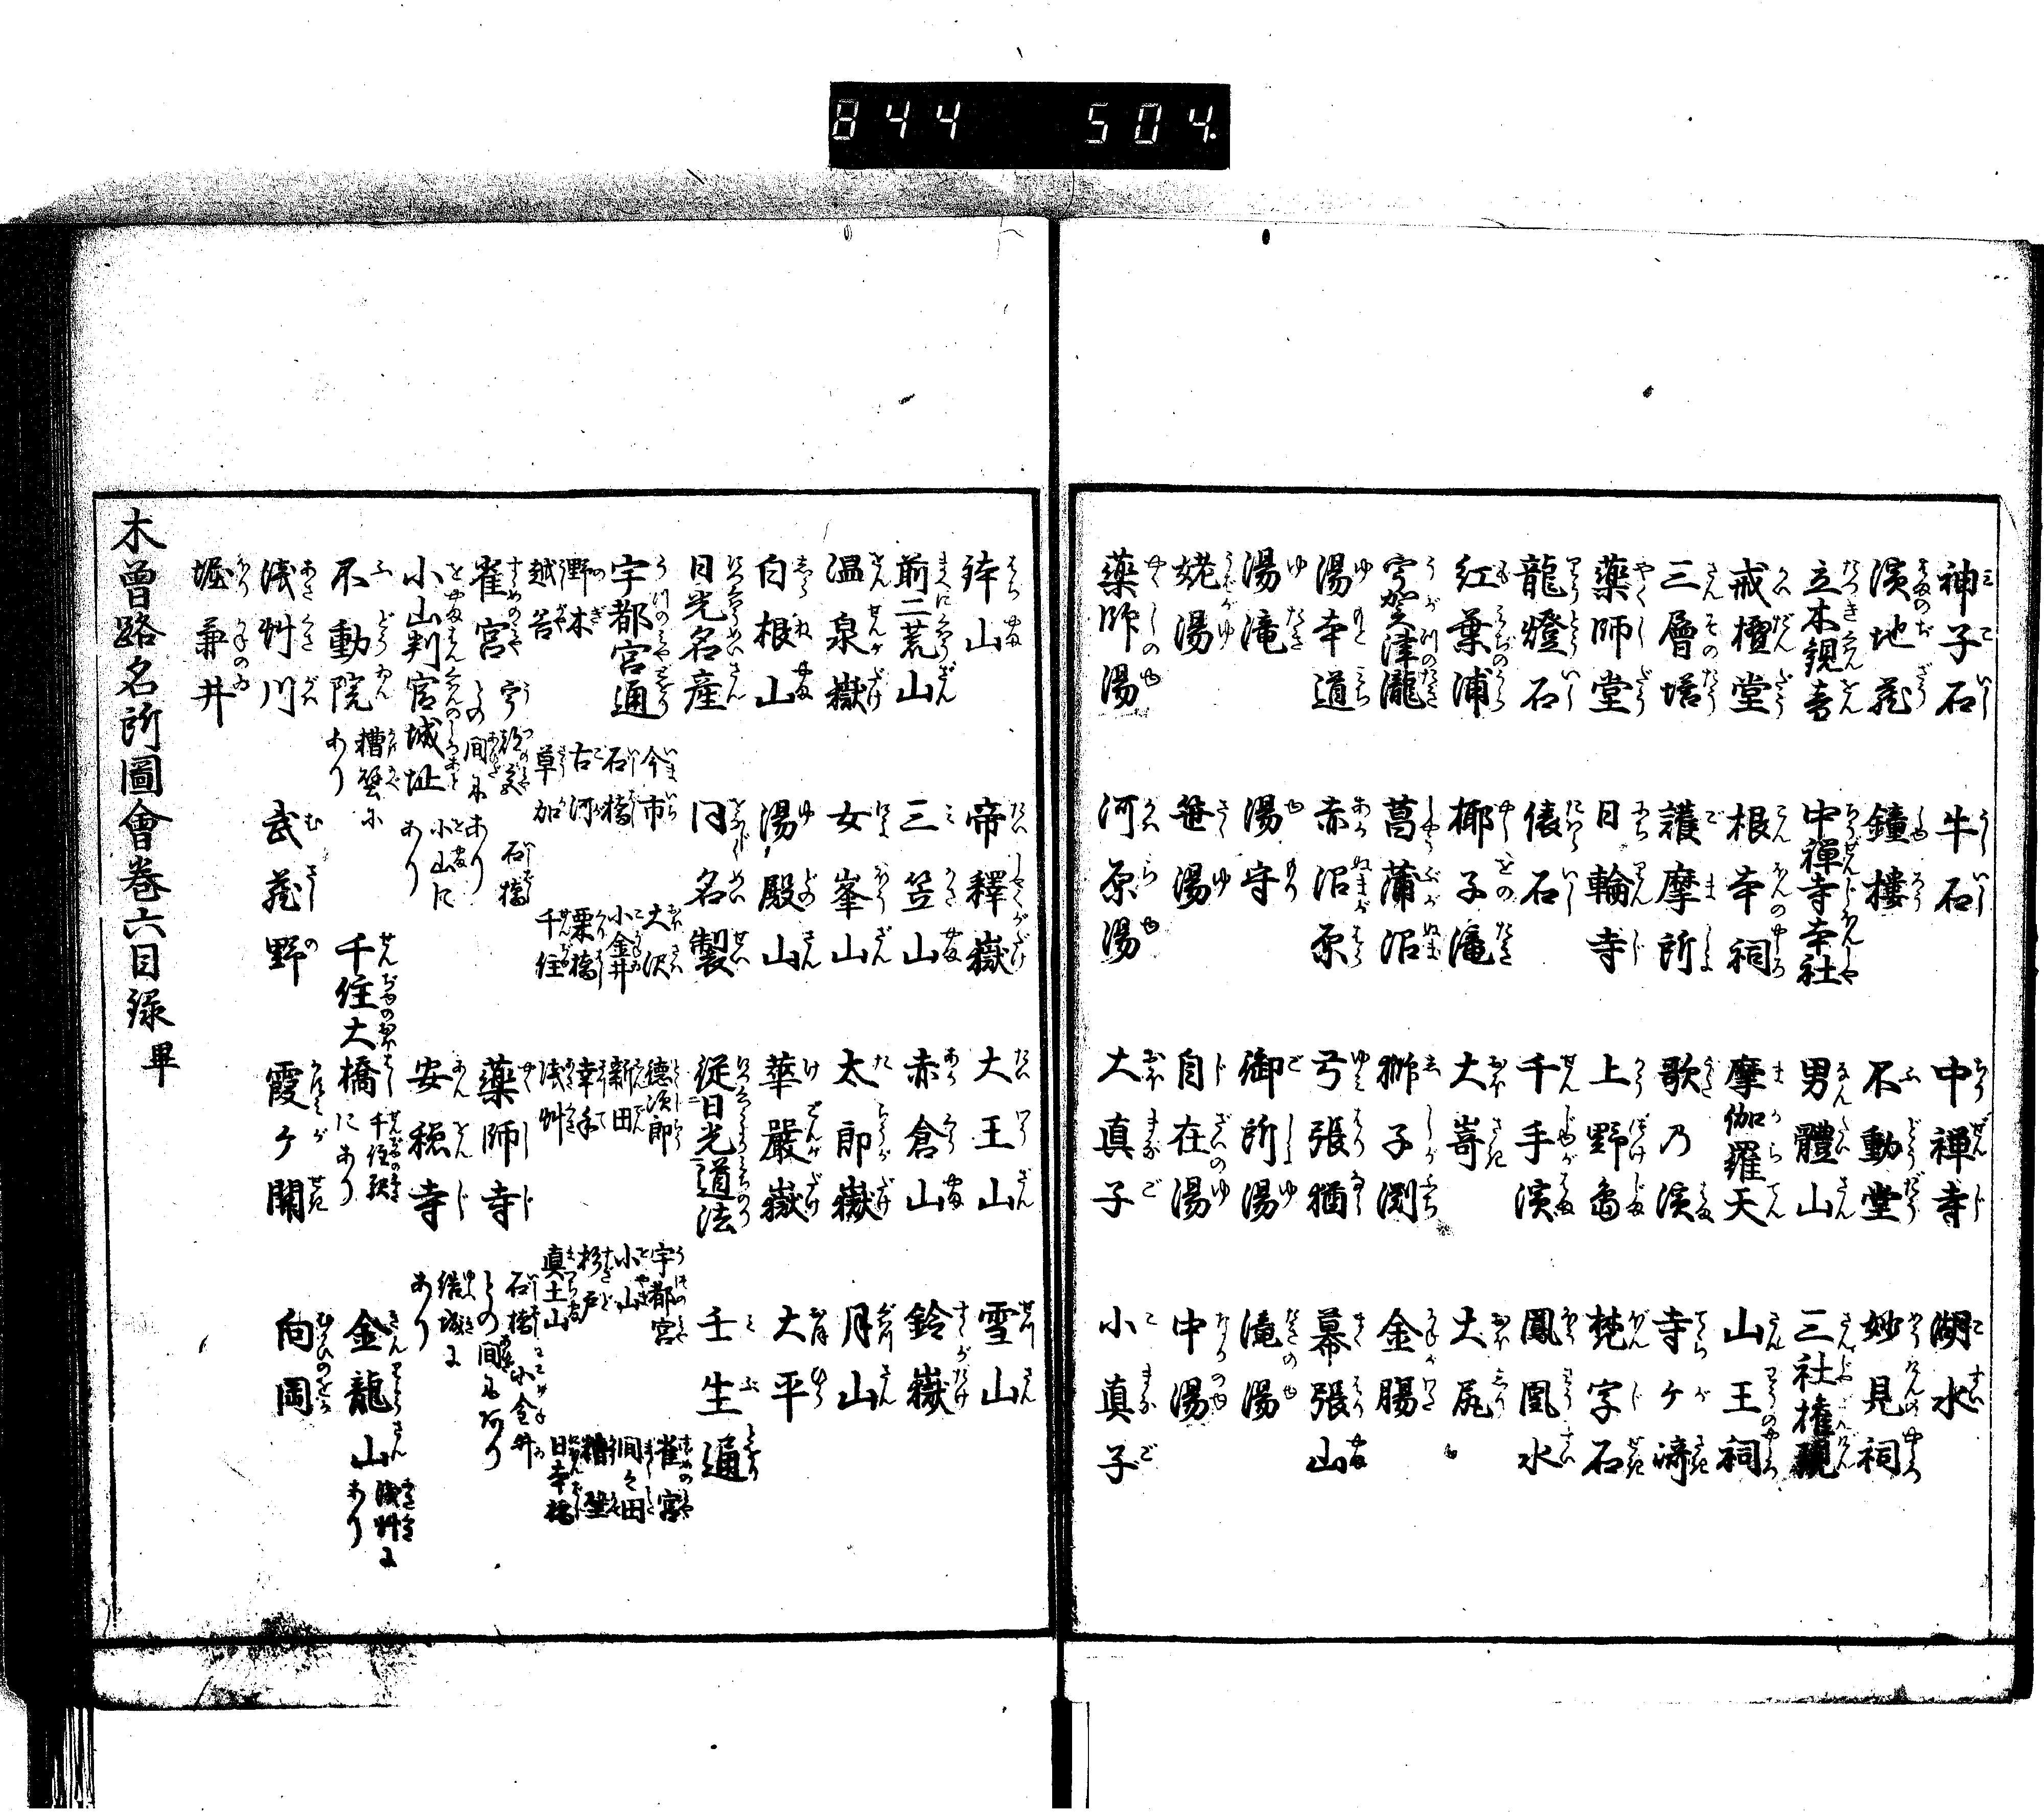 844 504.
神子石 牛石 中禪寺 湖水
濱地蔵 鐘樓 不動堂 妙見祠
立木観音 中禪寺本社 男體山 三社権現
戒檀堂 根本祠 摩伽羅天 山王祠
三層塔 護摩所 歌乃濱 寺ケ﨑
薬師堂 日輪寺 上野島 梵字石
龍燈石 俵石 千手濱 鳳凰水
紅葉浦 椰子滝 大嵜 大尻
宇賀津瀧 菖蒲沼 獅子渕 金腸
湯本道 赤沼原 弓張猶 幕張山
湯滝 湯守 御所湯 滝湯
姥湯 笹湯 自在湯 中湯
薬師湯 河原湯 大真子 小真子
鉢山 帝釋嶽 大王山 雪山
前二荒山 三笠山 赤倉山 鈴嶽
温泉嶽 女峯山 太郎嶽 月山
白根山 湯殿山 華嚴嶽 大平
日光名産 同名製 従日光道法 壬生通
宇都宮通 今市 大沢 徳次郎 宇都宮 雀宮
石橋 小金井 新田 小山 間々田
野木 古河 栗橋 幸手 杉戸 糟壁
越谷 草加 千住 浅艸 真土山 日本橋
雀宮 宇都宮 石橋 との間にあり 薬師寺 石橋 小金井 との間にあり
小山判官城址 小山にあり 安穏寺 結城にあり
不動院 糟壁にあり 千住大橋 千住駅にあり 金龍山 浅艸にあり
浅艸川 武蔵野 霞ケ関 向岡
堀兼井
木曽路名所圖會巻六目録畢